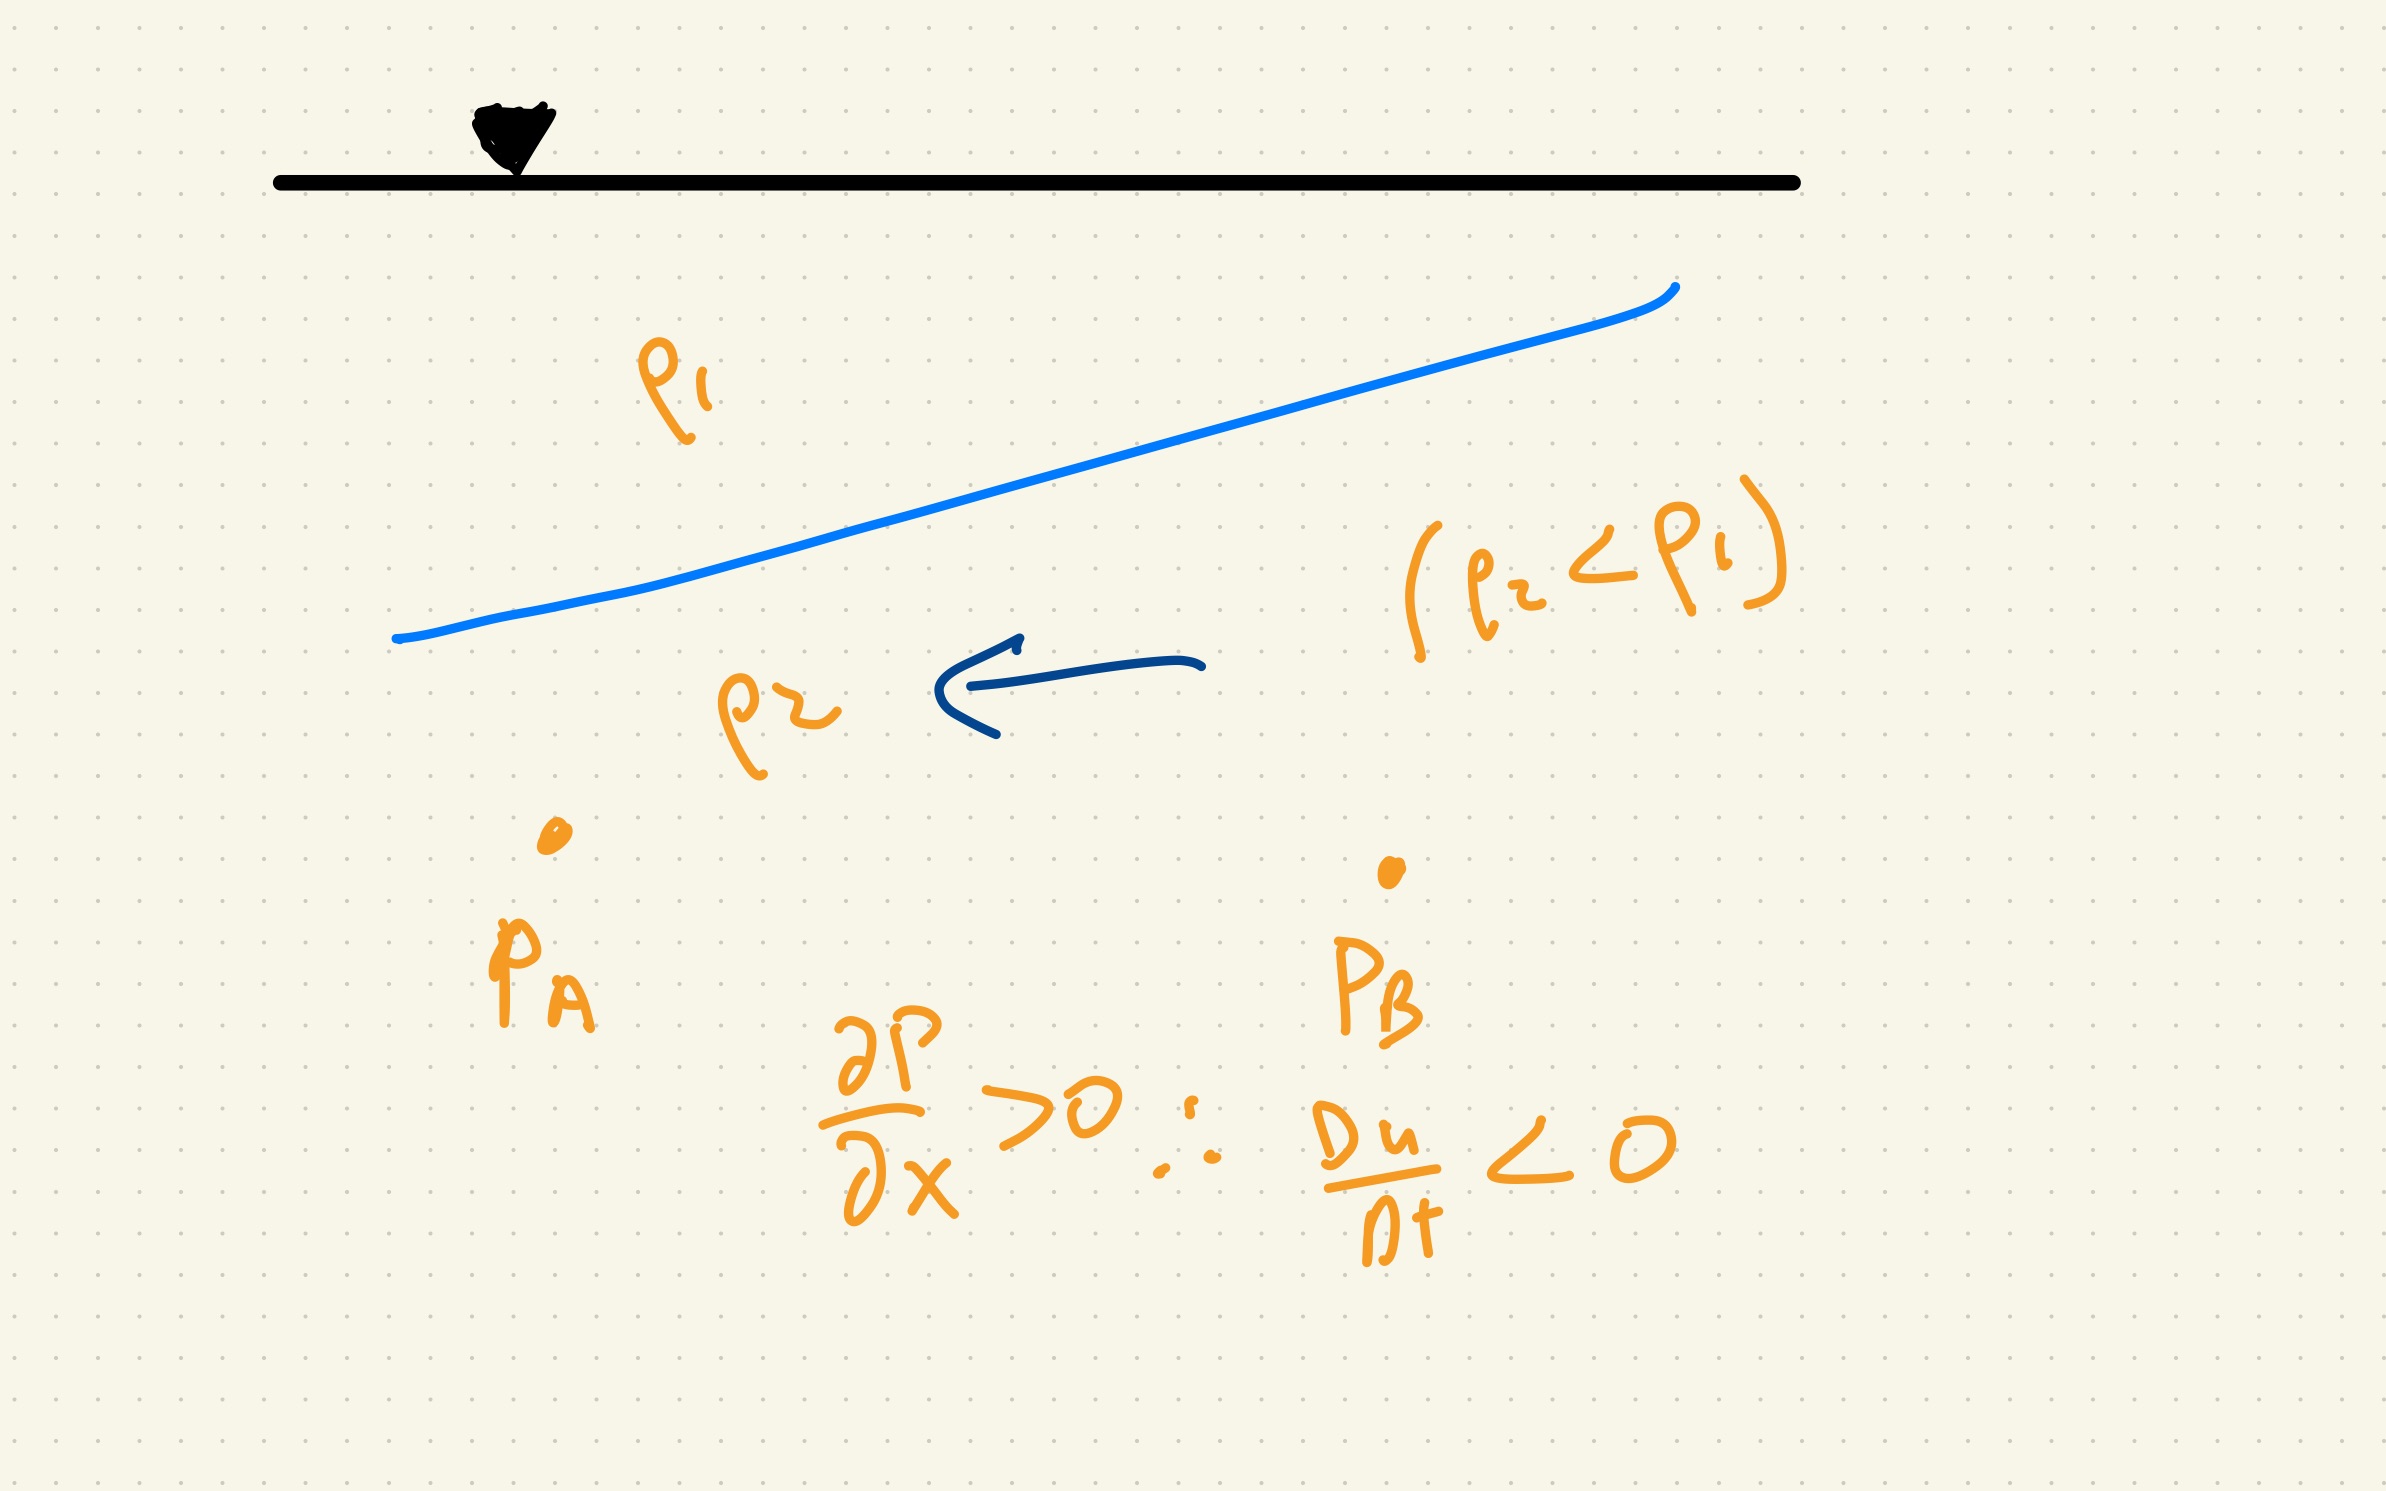 ρ₁
(ρ₂ < ρ₁)
ρ₂
P_A
P_B
∂P/∂x > 0 ∴ Du/Dt < 0